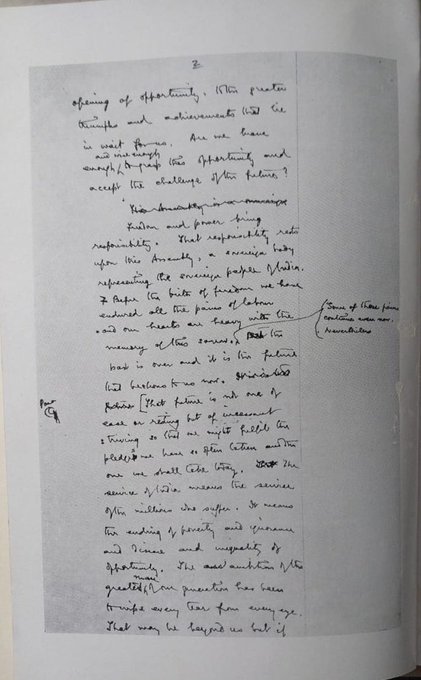 2
opening of opportunity, to the greater
triumphs and achievements that lie
in wait for us. Are we brave
and wise enough
enough to grasp this opportunity and
accept the challenge of the future?
This Assembly is a sovereign
Freedom and power bring
responsibility. That responsibility rests
upon this Assembly, a sovereign body
representing the sovereign people of India.
Before the birth of freedom we have
endured all the pains of labour
and our hearts are heavy with the
memory of this sorrow. But the
Some of those pains
continue even now.
Nevertheless
past is over and it is the future
that beckons to us now.
Para
[That future is not one of
ease or resting but of incessant
striving so that we might fulfil the
pledges we have so often taken and the
one we shall take today. The
service of India means the service
of the millions who suffer. It means
the ending of poverty and ignorance
and disease and inequality of
opportunity. The ambition of the
greatest man of our generation has been
to wipe every tear from every eye.
That may be beyond us but if